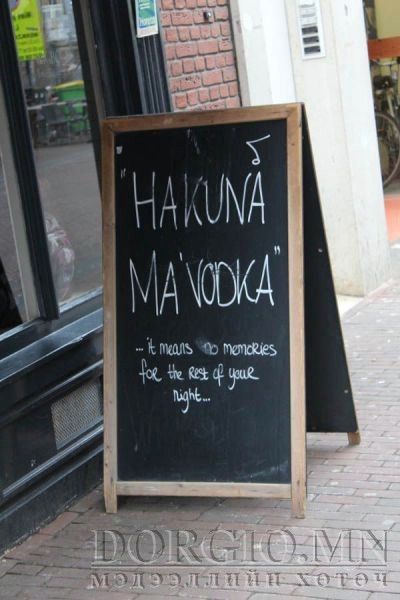 "HAKUNA
MA'VODKA"
...it means no memories
for the rest of your
night...
DORGIO.MN
мэдээллийн хөтөч